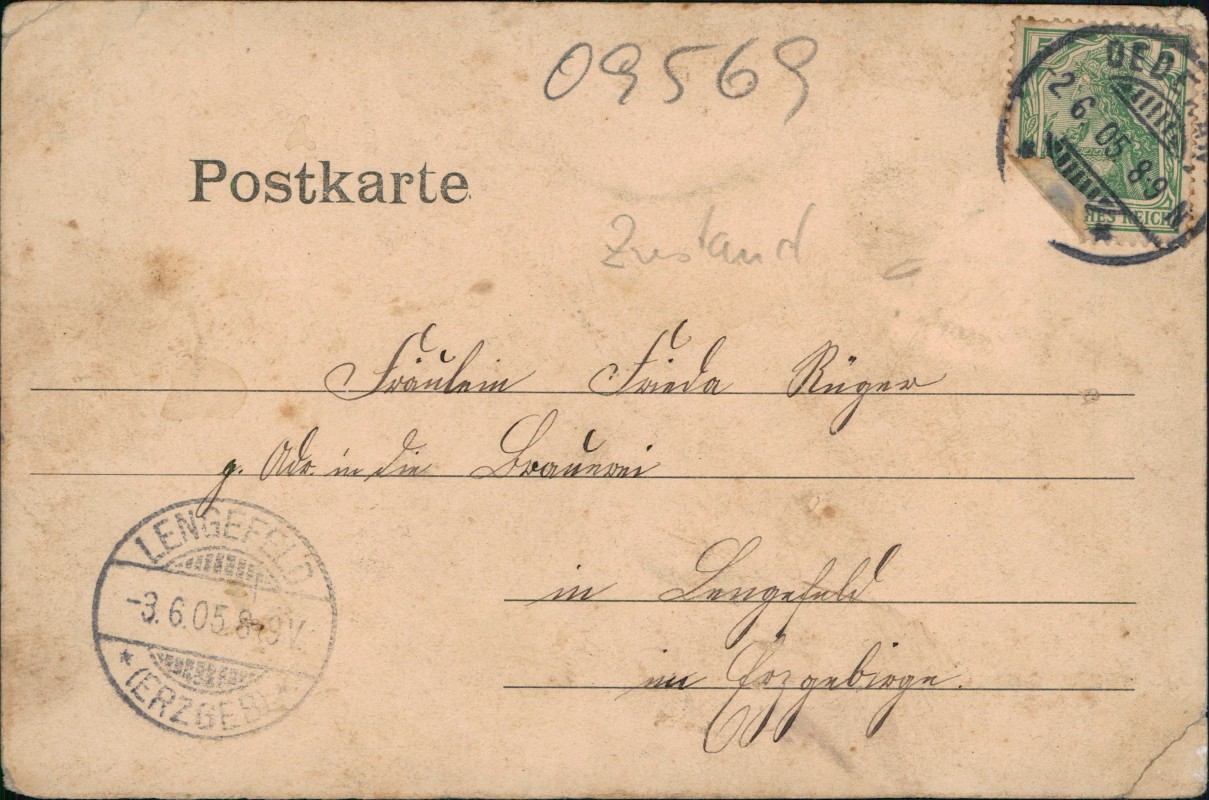 09569
5 5
OED
-2 6. 05. 8-9 N
HES REICH
Postkarte
Zustand
Fräulein Frieda Rüger
p. Adr. in die Brauerei
in Lengefeld
im Erzgebirge.
LENGEFELD
-3. 6. 05. 8-9V.
* (ERZGEB.) *